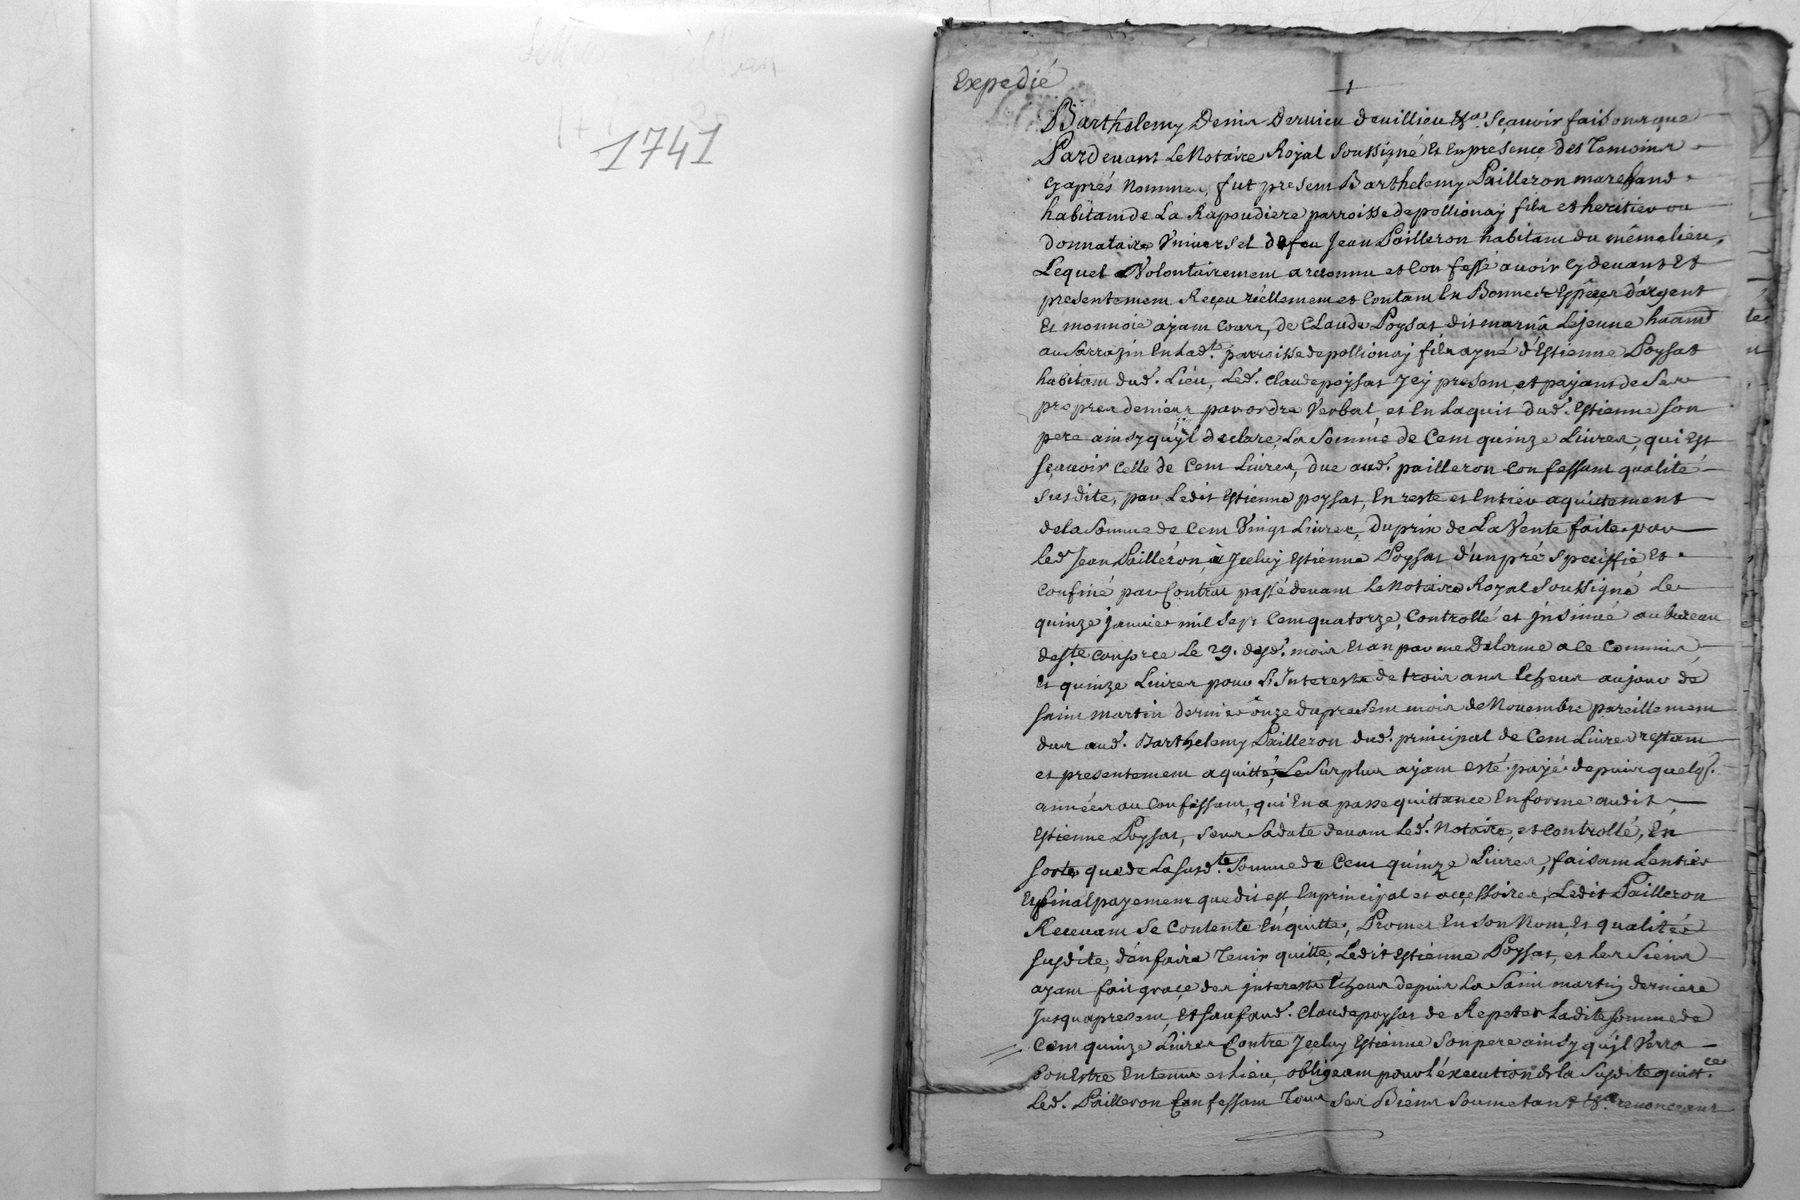 1741
Expedié
1
Barthelemy Denis Dervieu devillieu &a. Sçavoir faisons que
Pardevant Le Notaire Royal Soussigné et en presence des Temoins
cy aprés Nommes, fut present Barthelemy Pailleron marchand
habitant de La Rapoudiere parroisse de pollionay fils et heritier ou
donnataire Vniversel de feu Jean Pailleron habitant du même lieu,
Lequel Volontairement a reconnu et Confessé avoir cy devant et
presentement Reçeu réellement et Contant En Bonnes Espêces d'argent
et monnoie ayant Cours, de Claude Poysat dit marna Lejeune
au Sarrazin En Lad.te parroisse de pollionay fils ayné d'Estienne Poysat
habitant dud. Lieu, Led. Claude poysat Icy present et payant de Ses
propres deniers par ordre Verbal, et En Laquit dud. Estienne Son
pere ainsy qu'yl declare, La Somme de Cent quinze Livres, qui Est
Sçavoir Celle de Cent Livres, due aud. pailleron Confessant qualité
Susdite, par Ledit Estienne poysat, En reste et Entier aquittement
de la Somme de Cent Vingt Livres, du prix de La Vente faite par
Led. Jean Pailleron à Jceluy Estienne Poysat d'un pré Speciffié Et
Confiné par Contrat passé devant Le Notaire Royal Soussigné Le
quinze janvier mil Sept Cent quatorze, Controllé et jnsinué au bureau
de Ste Consorce Le 29. desd. mois et an par me Delorme a Ce Commis,
Et quinze Livres pour L'Interests de trois ans Echeus au jour de
Saint martin dernier ônze du present mois de Novembre pareillement
dus aud. Barthelemy Pailleron dud. principal de Cent Livres restant
et presentement aquitté, Le Surplus ayant esté payé depuis quelqs.
années au Confessant, qui En a passe quittance En forme audit
Estienne Poysat, Sous Sa date devant Led. Notaire, et Controllé, En
Sorte que de La Susd.te Somme de Cent quinze Livres, faisant Lentier
Et final payement que dit est, En principal et accessoires, Ledit Pailleron
Recevant Se Contente En quitte, Promet En Son Nom Et qualité
Susdite, d'en faire Tenir quitte, Ledit Estienne Poysat, et Les Siens
ayant fait grace des jnterests Echeus depuis La Saint martin derniere
Jusqu a present, Et Sauf aud. Claude poysat de Repeter Ladite Somme de
Cent quinze Livres Contre Jceluy Estienne Son pere ainsy qu'yl Verra
bon Estre En temps et Lieu, obligeant pour l'éxecution de la Susdite quitt.ce
Led. Pailleron Confessant Tous Ses Biens Soumetant &a. renonceant